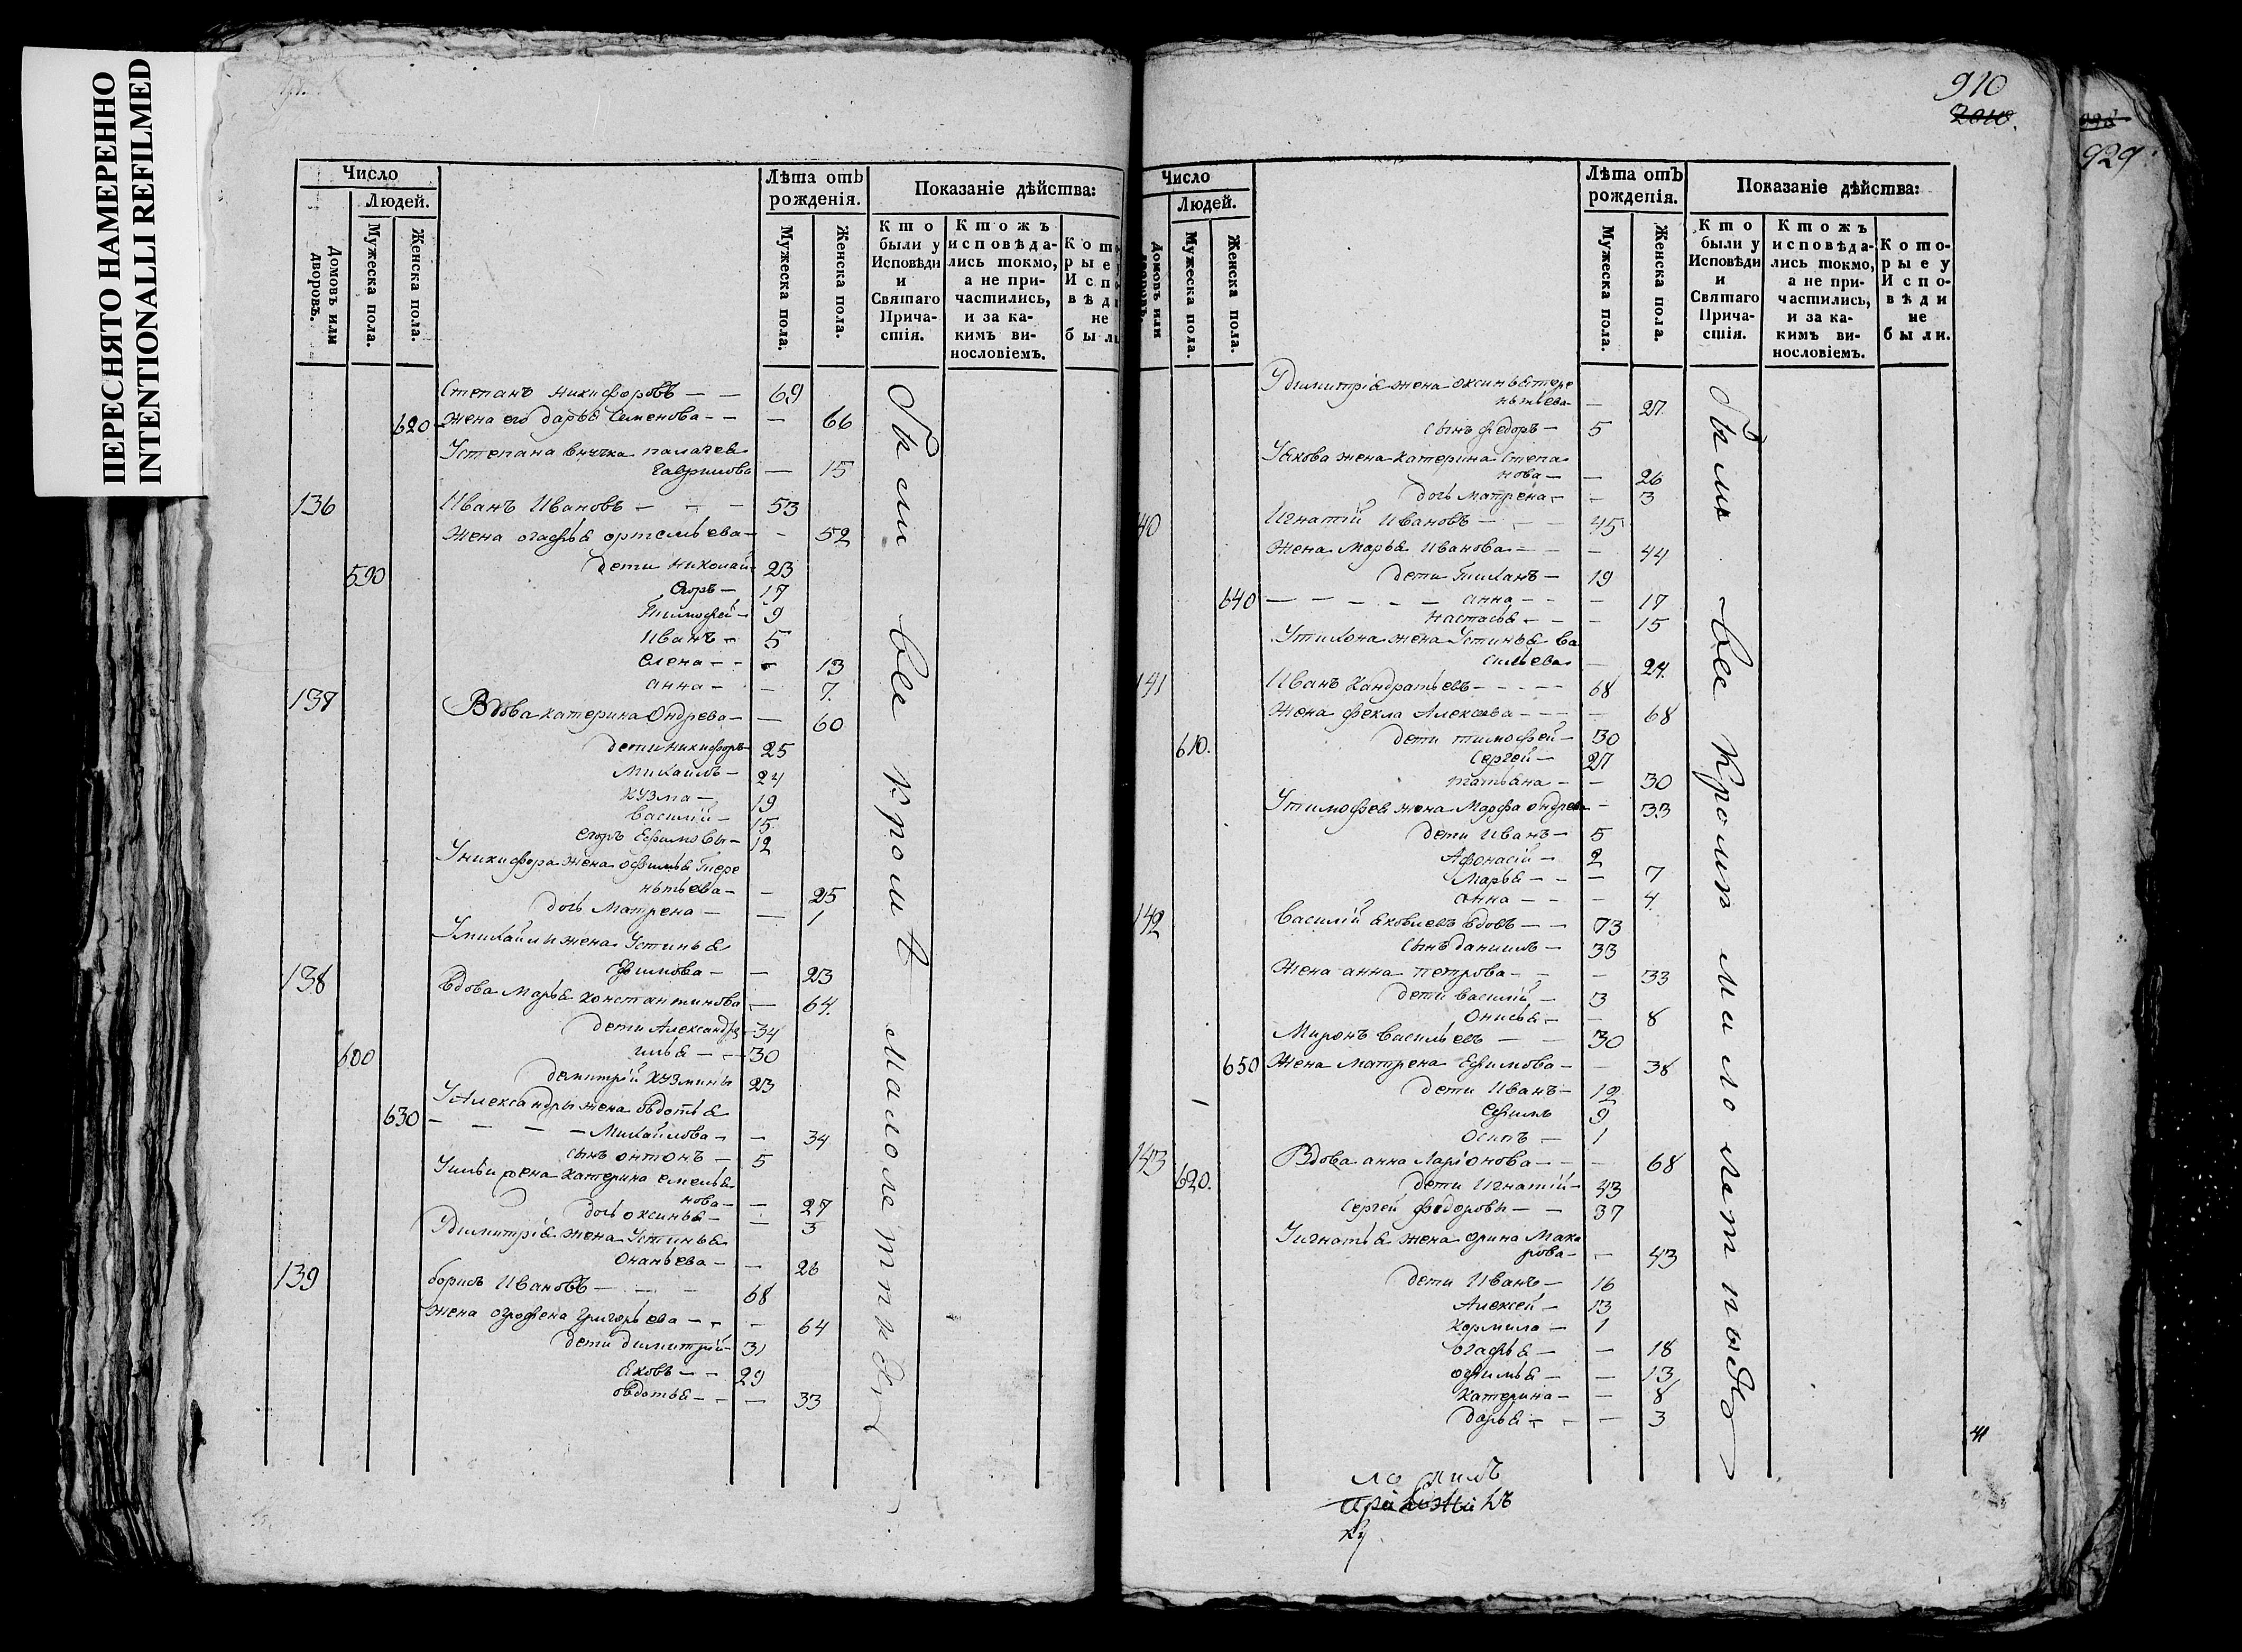 ПЕРЕСНЯТО НАМЕРЕННО
INTENTIONALLI REFILMED
Число
Людей.
Домовъ или дворовъ.
Мужеска пола.
Женска пола.
Лѣта отъ рожденія.
Мужеска пола.
Женска пола.
Показаніе дѣйства:
Кто были у Исповѣди и Святаго Причастія.
Ктожъ исповѣдались токмо, а не причастились, и за какимъ винословіемъ.
Степанъ Никифоровъ — — 69
620 Жена его дарья Семенова — — — 66
Устепана внучка палагея
Гаврилова — 15
136 Иванъ Ивановъ — — — 53
Жена огафья ортемьева — — 52
590 дети Николай 23
Егоръ — 17
Тимофей — 9
Иванъ — 5
Елена — — — 13
анна — — 7.
137 Вдова катерина Ондрева — — 60
дети никифоръ — 25
Михаилъ — 24
кузма — 19
Василій — 15
егоръ Ефимовы — 12
Уникифора жена офимья Тере
нтьева — — 25
дочь Матрена — — 1
Умихаилы жена Устинья
Ефимова — — 23
138 Вдова Марья константинова — 64.
дети Александръ — 34
600 илья — — 30
демитрій кузмины 23
УАлександры жена овдотья
630 — — — — Михайлова — — 34
сынъ онтонъ — 5
Уильи жена катерина емелья
нова — — 27
дочь оксинья — — 3
Удимитрія жена Устинья
Онаньева — — 26
139 борисъ Ивановъ — — — 68
жена огрофена григорьева — — — 64
дети димитрій — 31
яковъ — — 29
овдотья — — — 33
Были все кроме малолетныхъ
910
2010.
929
Число
Людей.
Домовъ или
Мужеска пола.
Женска пола.
Лѣта отъ рожденія.
Мужеска пола.
Женска пола.
Показаніе дѣйства:
Кто были у Исповѣди и Святаго Причастія.
Ктожъ исповѣдались токмо, а не причастились, и за какимъ винословіемъ.
Которые у Исповѣди не были.
Удимитрія жена оксинья тере
нтьева — — 27.
сынъ федоръ — 5
Уякова жена катерина степа
нова — — 26
дочь матрена — — 3
40 Игнатій Ивановъ — — — 45
Жена марья Иванова — — — — 44
дети Тиханъ — 19
640 — — — — — анна — — — 17
настасья — — — 15
Утихона жена Устинья ва
сильева — 24.
141 Иванъ кандратьевъ — — — — 68
Жена фекла Алексева — — — — 68
610. дети тимофей — 30
Сергей — 27
татьяна — — 30
Утимофея жена Марфа ондрева — 33
дети Иванъ — 5
Афонасій — 2
Марья — — — 7
анна — — — 4.
142 Василій яковлевъ вдовъ — — 73
сынъ данилъ — 33
Жена анна петрова — — — 33
дети василій — 3
Онисья — — 8
Миронъ васильевъ — — 30
650 Жена матрена Ефимова — — 38
дети Иванъ — 12
Ефимъ 9
Осипъ — 1
143 Вдова анна Ларіонова — — — 68
620. дети Игнатій — 43
Сергей федоровы — — 37
Уигнатья жена орина Мака
рова — — 43
дети Иванъ — 16
Алексей — 13
кормила — 1
огафья — — 18
офимья — — 13
катерина — — 8
дарья — — — 3
Были все кроме малолетныхъ